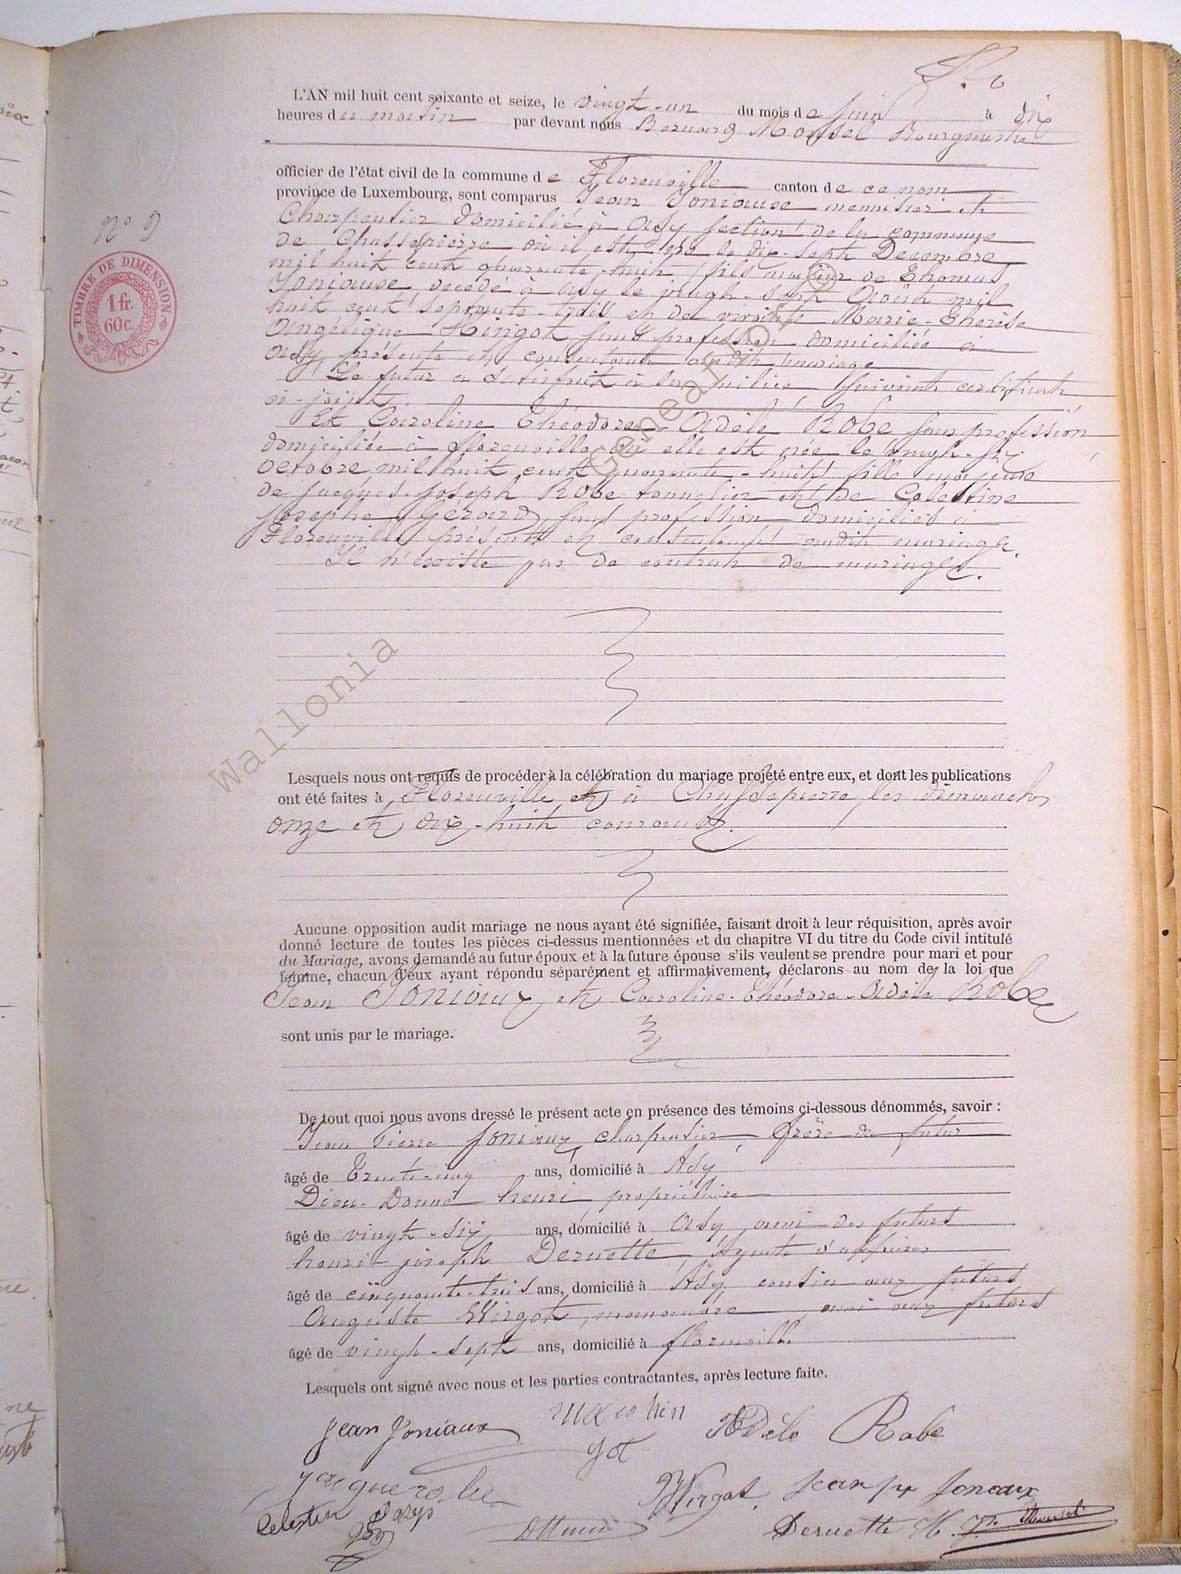 N° 9
TIMBRE DE DIMENSION
1 fr.
60c.
L'AN mil huit cent soixante et seize, le vingt-un du mois de juin à dix
heures du matin par devant nous Bernard Mousel Bourgmestre
officier de l'état civil de la commune de Florenville canton de ce nom
province de Luxembourg, sont comparus Jean Joniause menuisier et
Charpentier domicilié à Asy section de la commune
de Chassepierre où il est né le dix-sept Decembre
mil huit cent quarante-huit, fils majeur de Thomas
Joniause décédé à Asy le vingt-sept Août mil
huit cent septante-trois et de vivante Marie-Thérèse
Angélique sans profession domiciliée à
Asy présente et consentant audit mariage
Le futur a satisfait à la milice suivant certificat
ci-joint.
Et Caroline Théodore-Adèle Robe sans profession
domiciliée à Florenville où elle est née le vingt-six
octobre mil huit cent quarante-huit, fille majeure
de Jacques-Joseph Robe tonnelier et de Celestine
Josephe Gérard, sans profession domiciliés à
Florenville présents et consentants audit mariage.
Il n'existe pas de contrat de mariage.
Wallonia
Geneal
Lesquels nous ont requis de procéder à la célébration du mariage projeté entre eux, et dont les publications
ont été faites à Florenville et à Chassepierre les dimanches
onze et dix-huit courant.
Aucune opposition audit mariage ne nous ayant été signifiée, faisant droit à leur réquisition, après avoir
donné lecture de toutes les pièces ci-dessus mentionnées et du chapitre VI du titre du Code civil intitulé
du Mariage, avons demandé au futur époux et à la future épouse s'ils veulent se prendre pour mari et pour
femme, chacun d'eux ayant répondu séparément et affirmativement, déclarons au nom de la loi que
Jean Joniaux et Caroline-Théodore-Adèle Robe
sont unis par le mariage.
De tout quoi nous avons dressé le présent acte en présence des témoins ci-dessous dénommés, savoir :
Jean Pierre Joniaux, charpentier, frère du futur
âgé de Trente-cinq ans, domicilié à Asy
Dieu-Donné henri propriétaire
âgé de vingt-six ans, domicilié à Asy, ami des futurs
henri joseph Deruette Agent d'affaires
âgé de cinquante-trois ans, domicilié à Asy cousin aux futurs
Auguste Wirgot, manoeuvre, ami aux futurs
âgé de vingt-sept ans, domicilié à florenville
Lesquels ont signé avec nous et les parties contractantes, après lecture faite.
Jean Joniaux Adèle Robe
Wirgot Jean Joneaux
Celestin
Deruette H. J.